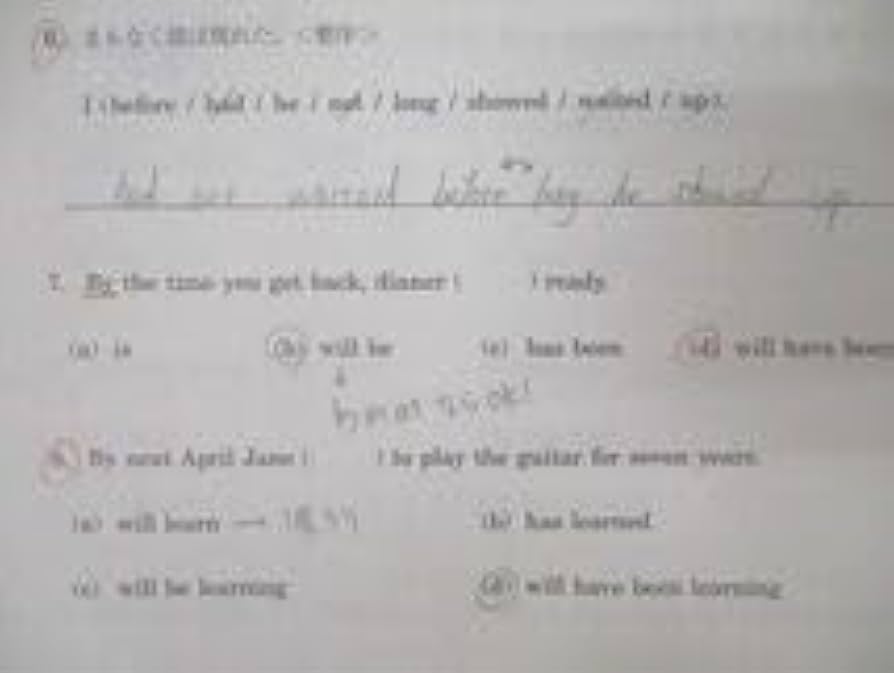 6. まもなく彼は現れた。<整序>
I (before / had / he / not / long / showed / waited / up).
had not waited before long he showed up
7. By the time you get back, dinner ( ) ready.
(a) is (b) will be (c) has been (d) will have been
8. By next April Jane ( ) to play the guitar for seven years.
(a) will learn → (b) has learned
(c) will be learning (d) will have been learning